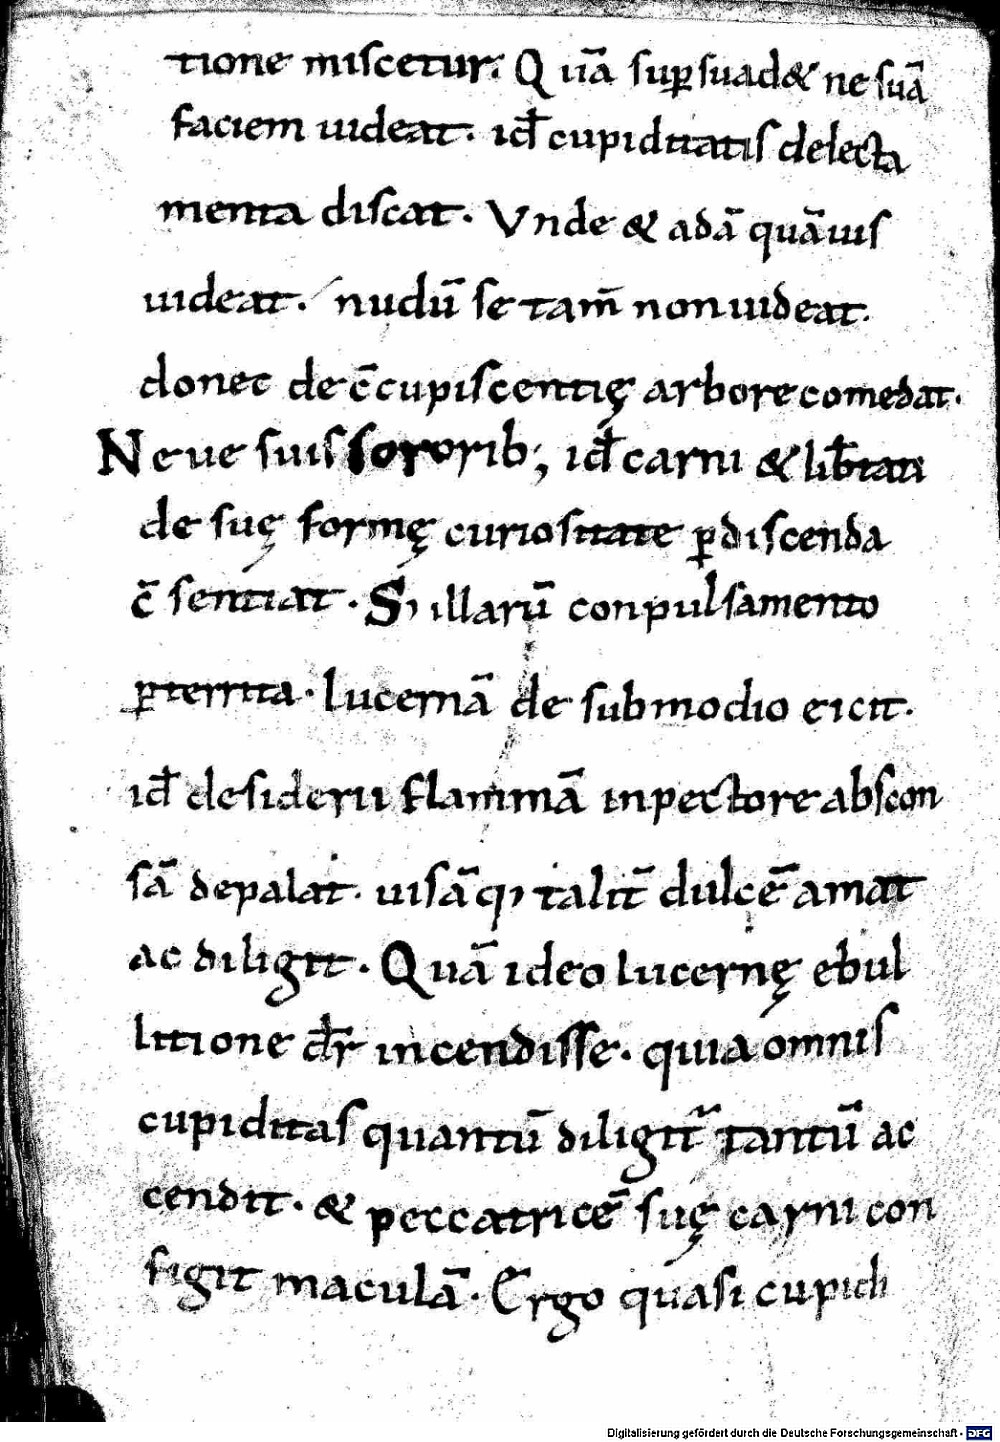 tione miscetur. Quā supsuad& ne suā
faciem uideat. id̄ cupiditatis delecta
menta discat. Vnde & adā quāuis
uideat. nudū se tam̄ non uideat.
donec de c̄cupiscentię arbore comedat.
Neue suis sororib; id̄ carni & lib̄tati
de suę formę curiositate ꝑdiscenda
c̄sentiat. S, illarū conpulsamento
ꝑterrita. lucernā de submodio eicit.
id̄ desiderii flammā inpectore abscon
sā depalat. uisāq, talit̄ dulcē amat
ac diligit. Quā ideo lucernę ebul
litione dr̄ incendisse. quia omnis
cupiditas quantū diligit̄ tantū ac
cendit. & peccatricē suę carni con
figit maculā. Ergo quasi cupidi
Digitalisierung gefördert durch die Deutsche Forschungsgemeinschaft - DFG